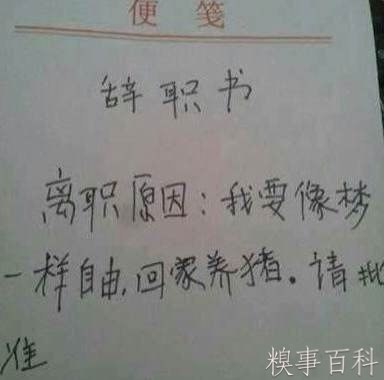 便笺
辞职书
离职原因：我要像梦
一样自由，回家养猪。请批
准
糗事百科